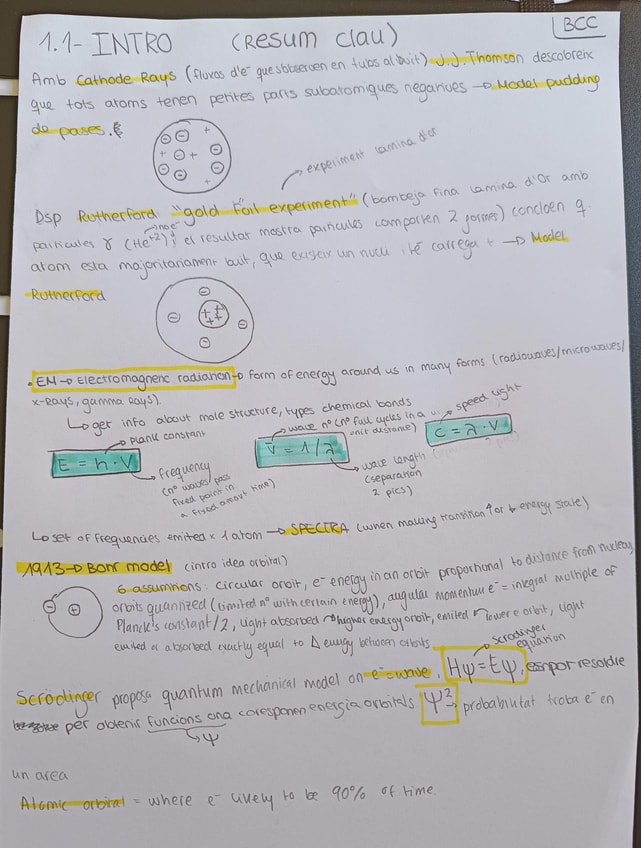 1.1- INTRO (Resum clau) BCC
Amb Cathode Rays (fluxos d'e⁻ que s'observen en tubs al buit) J.J. Thomson descobreix
que tots atoms tenen petites parts subatomiques negatives → Model pudding
de pases.
experiment lamina d'or
Dsp Rutherford "gold foil experiment" (bombeja fina lamina d'Or amb
particules γ (He⁺²) ; el resultat mostra particules comporten 2 formes) concloen q.
atom esta majoritariament buit, que existeix un nucli i té carrega + → Model
Rutherford
. EM → Electromagnetic radiation → form of energy around us in many forms (radiowaves/microwaves/
x-Rays, gamma rays).
↳ get info about mole structure, types chemical bonds
Plank constant
wave nº (nº full cycles in a unit distance)
speed light
E = h · V
V̄ = 1/λ
c = λ · V
frequency
(nº waves pass
fixed point in
a fixed amout time)
wave length
(separation
2 pics)
↳ set of frequencies emited x 1 atom → SPECTRA (when making transition ↑ or ↓ energy state)
1913 → Bohr model (intro idea orbital)
6 assumtions: circular orbit, e⁻ energy in an orbit proportional to distance from nucleus,
orbits quantized (limited nº with certain energy), angular momentum e⁻ = integral multiple of
Planck's constant/2, light absorbed → higher energy orbit, emited → lower e orbit, light
emited or absorbed exactly equal to Δ energy between orbits
Scrodinger equation
Scrödinger proposa quantum mechanical model on e⁻ = wave. Hψ = Eψ, es pot resoldre
per obtenir funcions ona coresponen energia orbitals ψ² → probabilitat troba e⁻ en
ψ
un area
Atomic orbital = where e⁻ likely to be 90% of time.